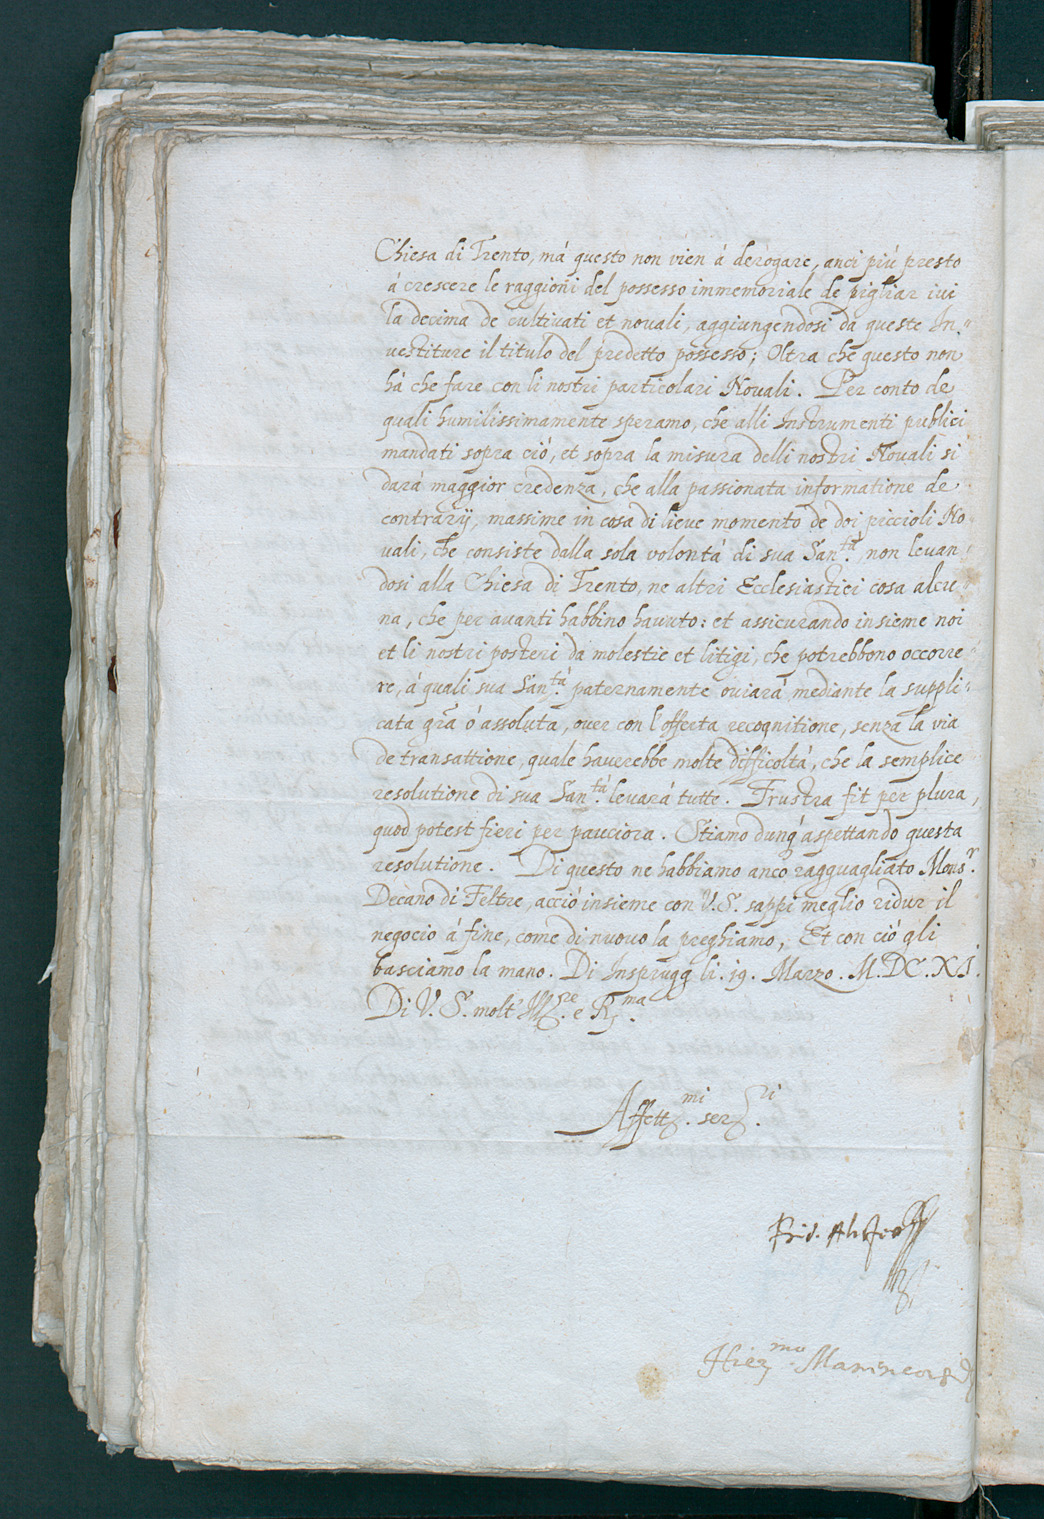 Chiesa di Trento, má questo non vien á derogare, anci piú presto
á crescere le raggioni del possesso immemoriale de pigliar iui
la decima de cultivati et nouali, aggiungendosi da queste In-
uestiture il titulo del predetto possesso; Oltra che questo non
há che fare con li nostri particolari Nouali. Per conto de
quali humilissimamente speramo, che alli Instrumenti publici
mandati sopra ció, et sopra la misura delli nostri Nouali si
dará maggior credenza, che alla passionata informatione de
contrarij, massime in cosa di lieve momento de doi piccioli No-
uali, che consiste dalla sola volontá di sua San.tá, non leuan-
dosi alla Chiesa di Trento, ne altri Ecclesiastici cosa alcu-
na, che per auanti habbino hauuto: et assicurando insieme noi
et li nostri posteri da molestie et litigi, che potrebbono occorre-
re, á quali sua San.tá paternamente ouiará mediante la suppli-
cata grã ó assoluta, ouer con l'offerta recognitione, senza la via
de transattione, quale hauerebbe molte difficoltá, che la semplice
resolutione di sua San.tá leuará tutte. Frustra fit per plura,
quod potest fieri per pauciora. Stiamo dunq' aspettando questa
resolutione. Di questo ne habbiamo anco ragguagliato Mons.r
Decano di Feltre, acció insieme con V.S. sappi meglio ridur il
negocio á fine, come di nuouo la preghiamo, Et con ció gli
basciamo la mano. Di Insprugg li. 19. Marzo. M.DC.XI.
Di V.S. molt' Ill.re e R.ma
Affett.mi ser.ri
Hier.mo